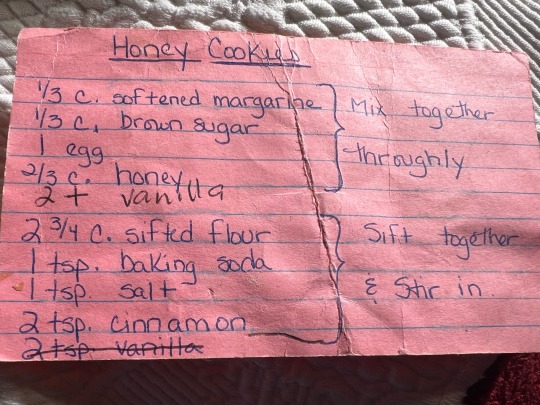 Honey Cookies
1/3 c. softened margarine
1/3 c. brown sugar
1 egg
2/3 c. honey
2 t vanilla
Mix together
throughly
2 3/4 c. sifted flour
1 tsp. baking soda
1 tsp. salt
2 tsp. cinnamon
2 tsp vanilla
Sift together
& Stir in.